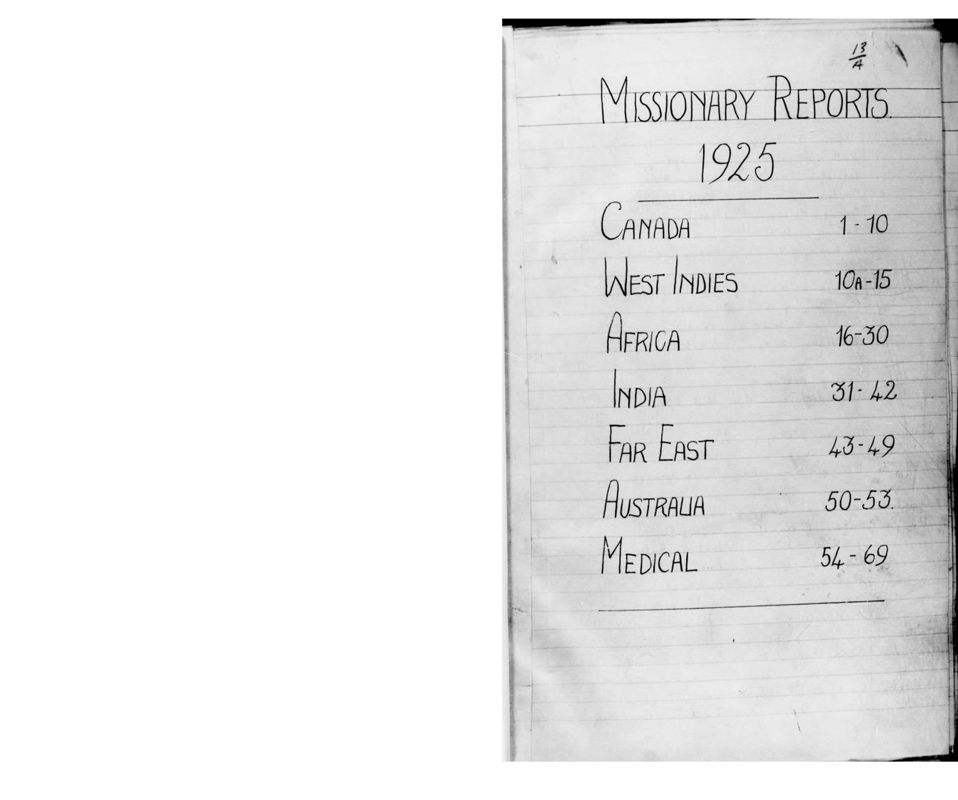 13
A
MISSIONARY REPORTS.
1925
CANADA 1-10
WEST INDIES 10A-15
AFRICA 16-30
INDIA 31-42
FAR EAST 43-49
AUSTRALIA 50-53.
MEDICAL 54-69